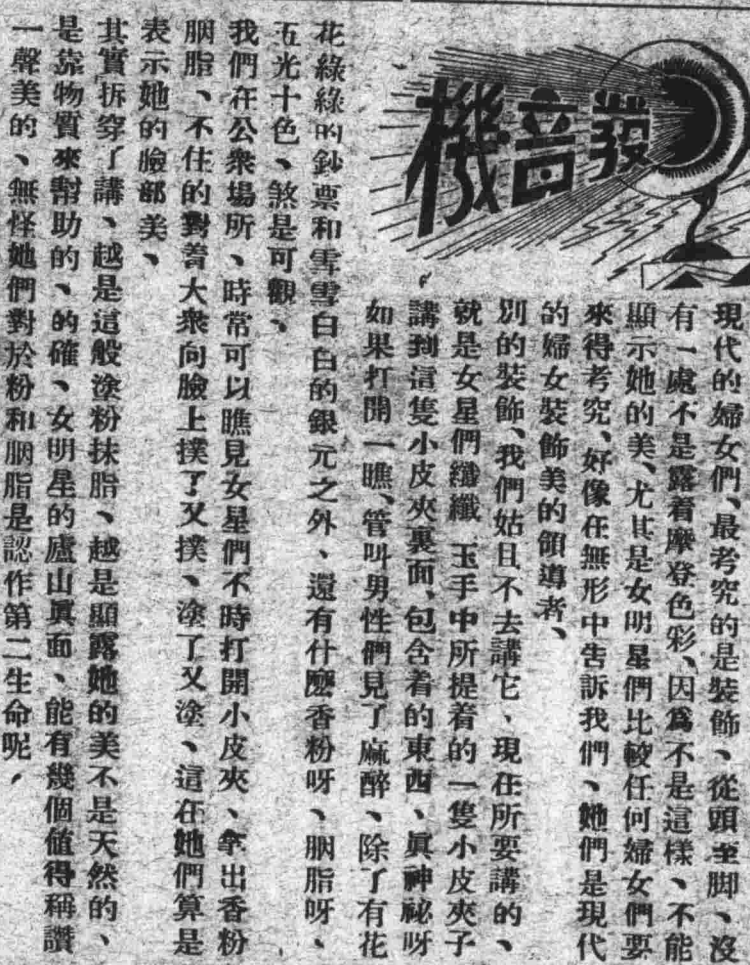 發音機
現代的婦女們、最考究的是裝飾、從頭至脚、沒
有一處不是露着摩登色彩、因爲不是這樣、不能
顯示她的美、尤其是女明星們比較任何婦女們要
來得考究、好像在無形中告訴我們、她們是現代
的婦女裝飾美的領導者、
別的裝飾、我們姑且不去講它、現在所要講的、
就是女星們纖纖玉手中所提着的一隻小皮夾子
講到這隻小皮夾裏面、包含着的東西、眞神祕呀
如果打開一瞧、管叫男性們見了麻醉、除了有花
花綠綠的鈔票和雪雪白白的銀元之外、還有什麽香粉呀、胭脂呀、
五光十色、煞是可觀、
我們在公衆場所、時常可以瞧見女星們不時打開小皮夾、拿出香粉
胭脂、不住的對着大衆向臉上撲了又撲、塗了又塗、這在她們算是
表示她的臉部美、
其實拆穿了講、越是這般塗粉抹脂、越是顯露她的美不是天然的、
是靠物質來幫助的、的確、女明星的廬山眞面、能有幾個値得稱讚
一聲美的、無怪她們對於粉和胭脂是認作第二生命呢、